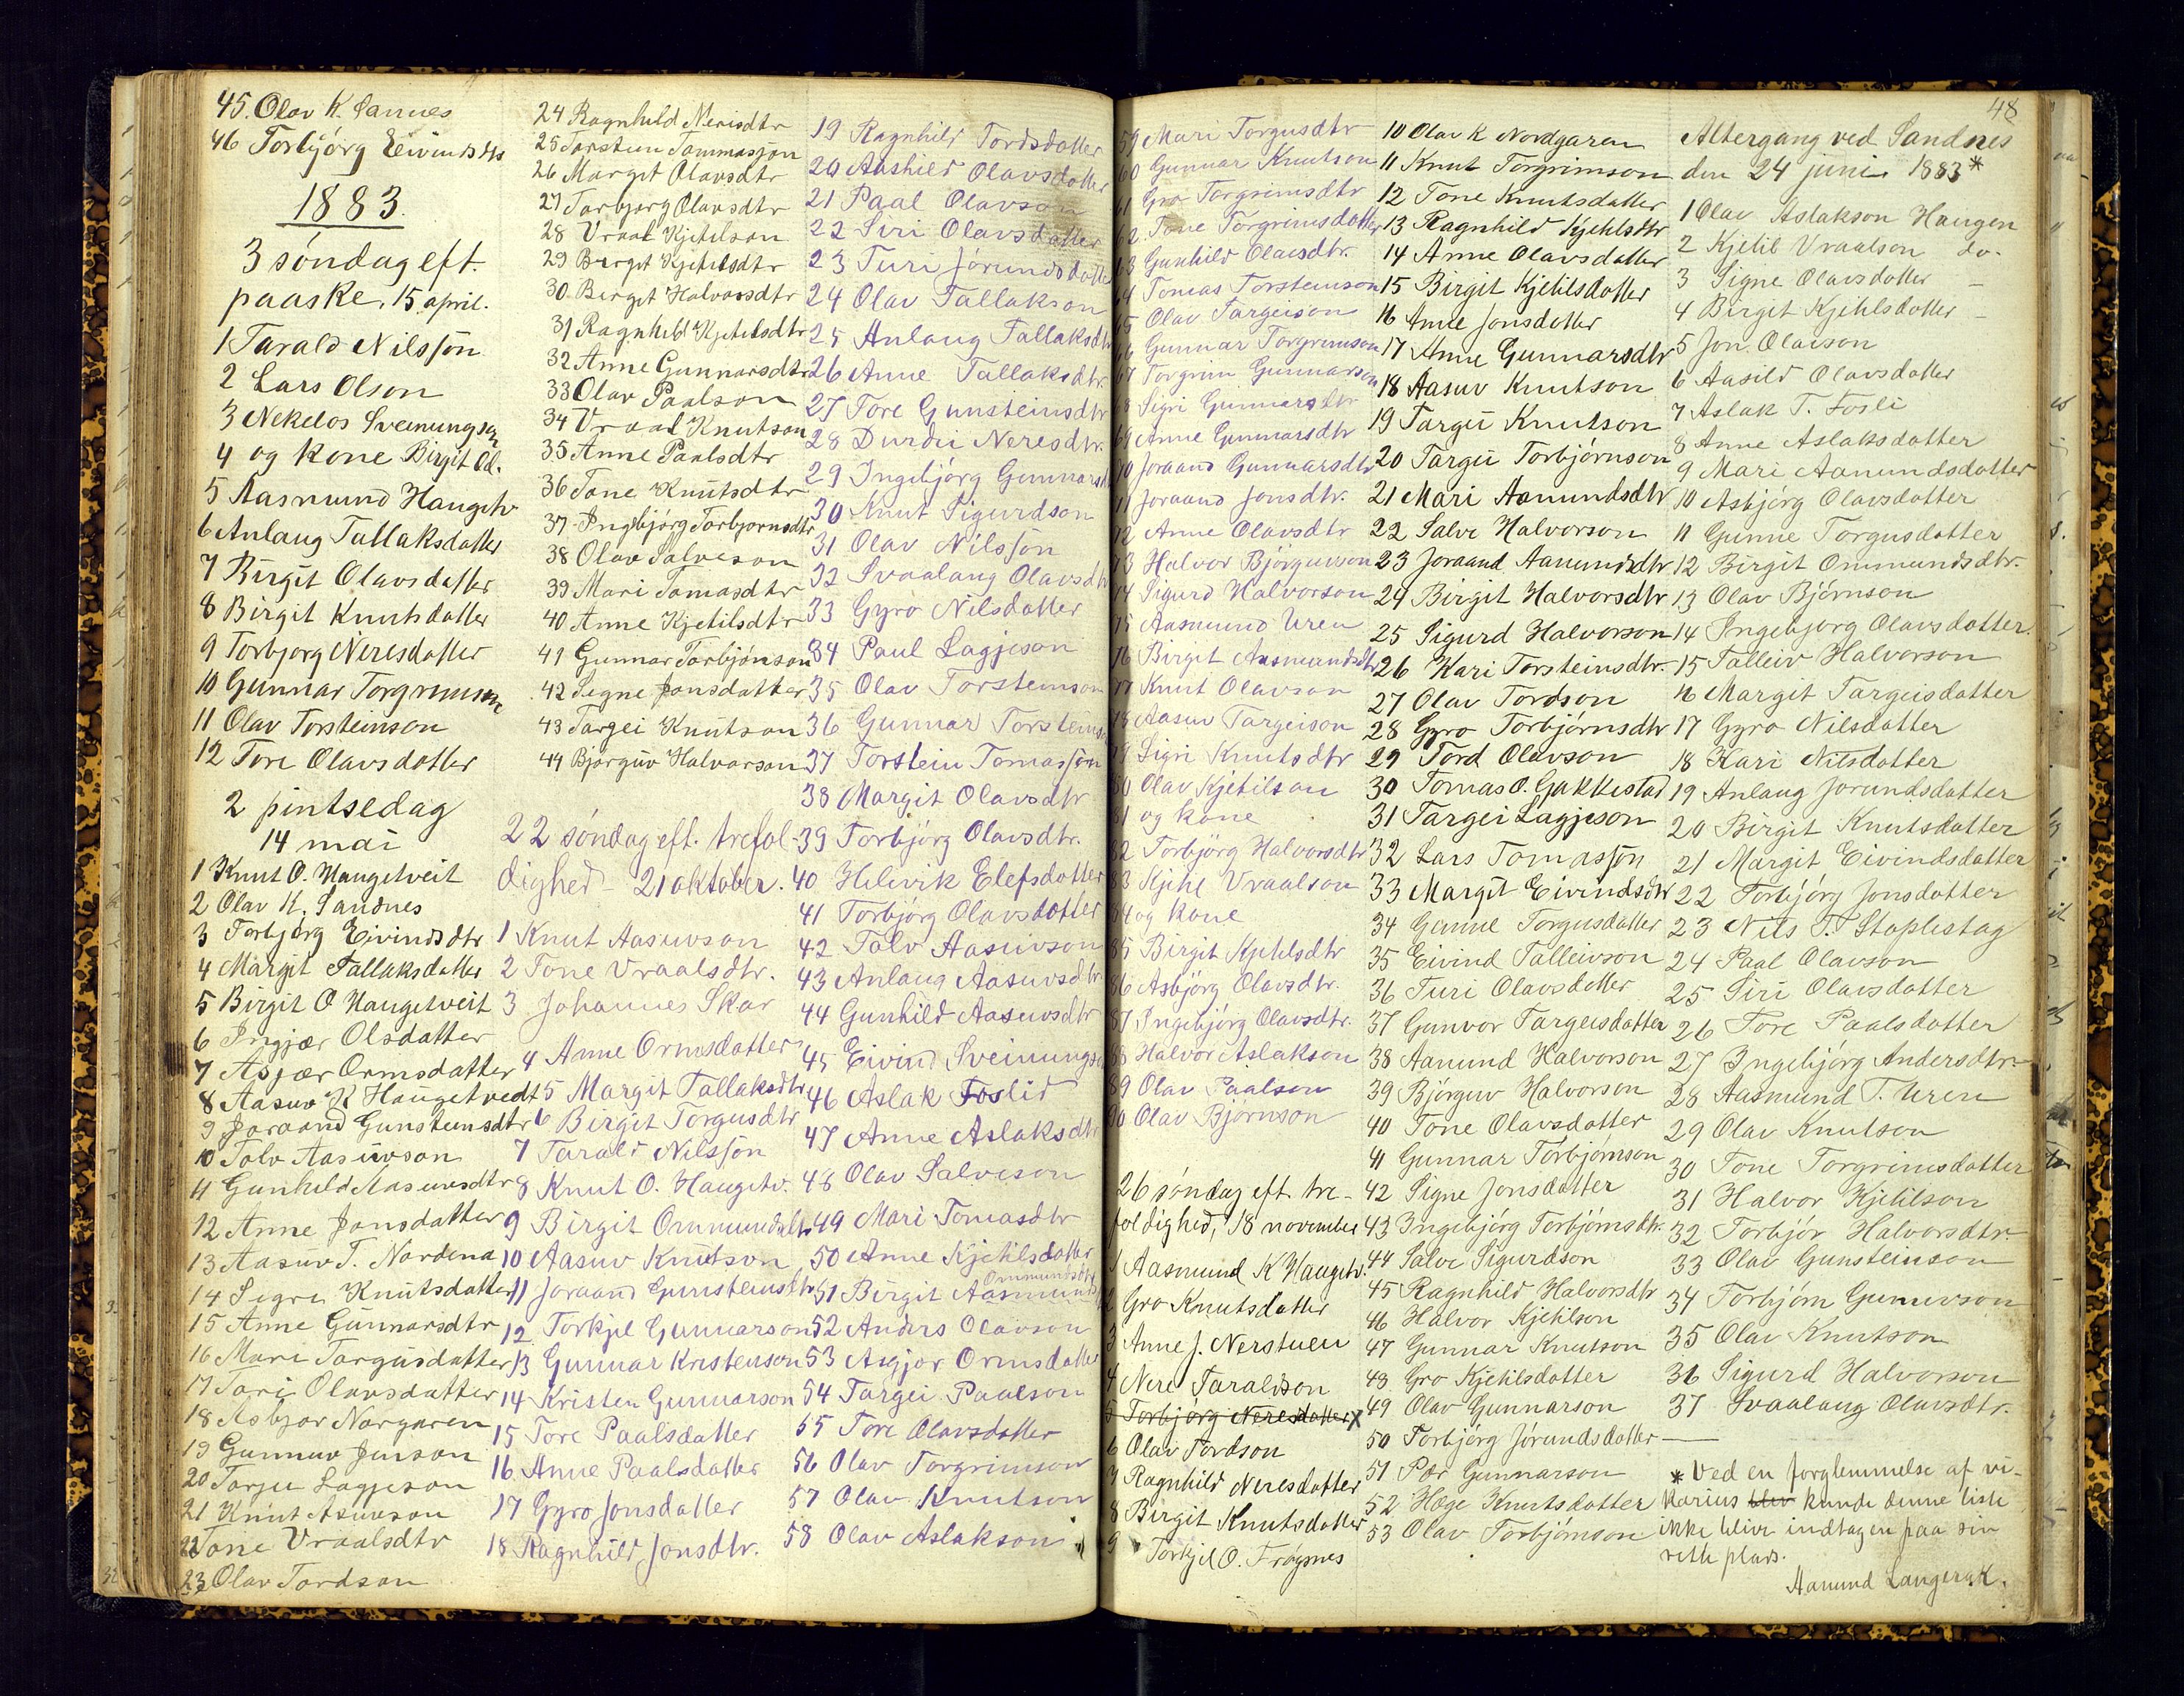 45. Olav K. Sannes
46 Torbjórg Eivindsdtr
1883.
3 sóndag eft.
paaske, 15 april.
1 Tarald Nilsson
2 Lars Olson
3 Nekelos Sveinungson
4 og kone Birgit Od.
5 Aasmund Haugetv
6 Anlaug Tallaksdatter
7 Birgit Olavsdatter
8 Birgit Knutsdatter
9 Torbjorg Neresdatter
10 Gunnar Torgrimson
11 Olav Torsteinson
12 Tore Olavsdatter
2 pintsedag
14 mai
1 Knut O. Haugetveit
2 Olav K. Sandnes
3 Torbjórg Eivindsdtr
4 Margit Tallaksdatter
5 Birgit O Haugetveit
6 Ingjær Olsdatter
7 Asjær Ormsdatter
8 Aasuv K Haugetvedt
9 Joraand Gunsteinsdtr
10 Tolv Aasuvson
11 Gunhild Aasuvsdtr
12 Anne Jonsdatter
13 Aasuv T. Nordena
14 Segri Knutsdatter
15 Anne Gunnarsdtr
16 Mari Targusdatter
17 Tari Olavsdatter
18 Asbjor Norgaren
19 Gunnuv Jonson
20 Tarjei Lagjeson
21 Knut Asuvson
22 Tone Vraalsdtr
23 Olav Tordson
24 Ragnhild Nerisdtr
25 Torstein Tommasson
26 Margit Olavsdtr
27 Torbjorg Olavsdtr
28 Vraal Kjetilson
29 Birgit Kjetilsdtr
30 Birgit Halvorsdtr
31 Ragnhild Kjetilsdtr
32 Anne Gunnarsdtr
33 Olav Paalson
34 Vraal Knutson
35 Anne Paalsdtr
36 Tone Knutsdtr
37 Ingebjórg Torbjornsdtr
38 Olav Salveson
39 Mari Tomasdtr
40 Anne Kjetilsdtr
41 Gunnar Torbjónson
42 Segne Jonsdatter
43 Targei Knutson
44 Bjorguv Halvorson
22 sóndag eft. trefol-
dighed - 21 oktober.
1 Knut Aasuvson
2 Tone Vraalsdtr.
3 Johannes Skar
4 Anne Ormsdatter
5 Margit Tallaksdtr
6 Birgit Torgusdtr
7 Tarald Nilsson
8 Knut O. Haugetv.
9 Birgit Ommundsdtr
10 Aasuv Knutson
11 Joraand Gunsteinsdtr
12 Torkjel Gunnarson
13 Gunnar Kristenson
14 Kristen Gunnarson
15 Tore Paalsdatter
16 Anne Paalsdatter
17 Gyro Jonsdatter
18 Ragnhild Jonsdtr.
19 Ragnhild Tordsdatter
20 Aashild Olavsdatter
21 Paal Olavson
22 Siri Olavsdatter
23 Turi Jórundsdatter
24 Olav Tallakson
25 Anlaug Tallaksdtr
26 Anne Tallaksdtr.
27 Tore Gunsteinsdtr
28 Durdei Neresdtr.
29 Ingebjórg Gunnarsdtr
30 Knut Sigurdson
31 Olav Nilsson
32 Svaalaug Olavsdtr
33 Gyro Nilsdatter
34 Paul Lagjeson
35 Olav Torsteinson
36 Gunnar Torsteinson
37 Torstein Tomasson
38 Margit Olavsdtr
39 Torbjórg Olavsdtr.
40 Helevik Elefsdatter
41 Torbjórg Olavsdatter
42 Tolv Aasuvson
43 Anlaug Aasuvsdtr.
44 Gunhild Aasuvsdtr
45 Eivind Sveinungson
46 Aslak Foslid
47 Anne Aslaksdtr
48 Olav Salveson
49 Mari Tomasdtr
50 Anne Kjetilsdatter
Ommundsdtr
51 Birgit Aasmundsdtr
52 Anders Olavson
53 Asgjor Ormsdatter
54 Targei Paalson
55 Tore Olavsdatter
56 Olav Torgrimson
57 Olav Knutson
58 Olav Aslakson
48
59 Mari Torgusdtr
60 Gunnar Knutson
61 Gro Torgrimsdtr
62 Tone Torgrimsdatter
63 Gunhild Olavsdtr.
64 Tomas Torsteinson
65 Olav Targeison
66 Gunnar Torgrimson
67 Torgrim Gunnarson
68 Sigri Gunnarsdtr
69 Anne Gunnarsdtr
70 Joraand Gunnarsdtr
71 Joraand Jonsdtr.
72 Anne Olavsdtr
73 Halvor Bjórguvson
74 Sigurd Halvorson
75 Aasmund Uren
76 Birgit Aasmundsdtr
77 Knut Olavson
78 Aasuv Targeison
79 Sigri Knutsdtr
80 Olav Kjetilson
81 og kone
82 Torbjörg Halvorsdtr
83 Kjetil Vraalson
84 og kone
85 Birgit Kjetilsdtr
86 Asbjörg Olavsdtr.
87 Ingebjórg Olavsdtr.
88 Halvor Aslakson
89 Olav Paalson
90 Olav Bjornson
26 sóndag eft. tre-
foldighed, 18 november
1 Aasmund K Haugetv.
2 Gro Knutsdatter
3 Anne J. Nerstuen
4 Nere Taraldson
5 Torbjórg Neresdatter X
6 Olav Tordson
7 Ragnhild Neresdatter
8 Birgit Knutsdatter
9 Torkjel O. Frógnes
10 Olav K Nordgaren
11 Knut Torgrimson
12 Tone Knutsdatter
13 Ragnhild Kjetilsdtr
14 Anne Olavsdatter
15 Birgit Kjetilsdatter
16 Anne Jonsdatter
17 Anne Gunnarsdtr
18 Aasuv Knutson
19 Targei Knutson
20 Targei Torbjórnson
21 Mari Aamundsdtr
22 Salve Halvorson
23 Joraand Aamundsdtr
24 Birgit Halvorsdtr
25 Sigurd Halvorson
26 Kari Torsteinsdtr.
27 Olav Tordson
28 Gyro Torbjórnsdtr
29 Tord Olavson
30 Tomas O. Gakkestad
31 Targei Lagjeson
32 Lars Tomasson
33 Margit Eivindsdtr
34 Gunne Torgusdatter
35 Eivind Talleivson
36 Turi Olavsdatter
37 Gunvor Targeisdatter
38 Aamund Halvorson
39 Bjórguv Halvorson
40 Tone Olavsdatter
41 Gunnar Torbjórnson
42 Signe Jonsdatter
43 Ingebjórg Torbjórnsdtr.
44 Salve Sigurdson
45 Ragnhild Halvorsdtr
46 Halvor Kjetilson
47 Gunnar Knutson
48 Gro Kjetilsdatter
49 Olav Gunnarson
50 Torbjórg Jórundsdatter
51 Per Gunnarson
52 Hæge Knutsdatter
53 Olav Torbjórnson
Altergang ved Sandnes
den 24 juni 1883*
1 Olav Aslakson Haugen
2 Kjetil Vraalson do.
3 Signe Olavsdatter –
4 Birgit Kjetilsdatter –
5 Jon Olavson
6 Aasild Olavsdatter
7 Aslak T. Fosli
8 Anne Aslaksdatter
9 Mari Aamundsdatter
10 Asbjórg Olavsdatter
11 Gunne Torgusdatter
12 Birgit Ommundsdtr.
13 Olav Bjórnson
14 Ingebjorg Olavsdatter.
15 Talleiv Halvorson
16 Margit Targeisdatter
17 Gyro Nilsdatter
18 Kari Nilsdatter
19 Anlaug Jorundsdatter
20 Birgit Knutsdatter
21 Margit Eivindsdatter
22 Torbjórg Jonsdatter
23 Nils T. Stoplestag
24 Paal Olavson
25 Siri Olavsdatter
26 Tore Paalsdatter
27 Ingebjórg Andersdtr.
28 Aasmund T. Uren
29 Olav Knutson
30 Tone Torgrimsdatter
31 Halvor Kjetilson
32 Torbjór Halvorsdtr.
33 Olav Gunsteinson
34 Torbjórn Gunuvson
35 Olav Knutson
36 Sigurd Halvorson
37 Svaalaug Olavsdtr.
* Ved en forglemmelse af vi-
karius blev kunde denne liste
ikke blive indtagen paa sin
rette plads.
Aamund Langerak.